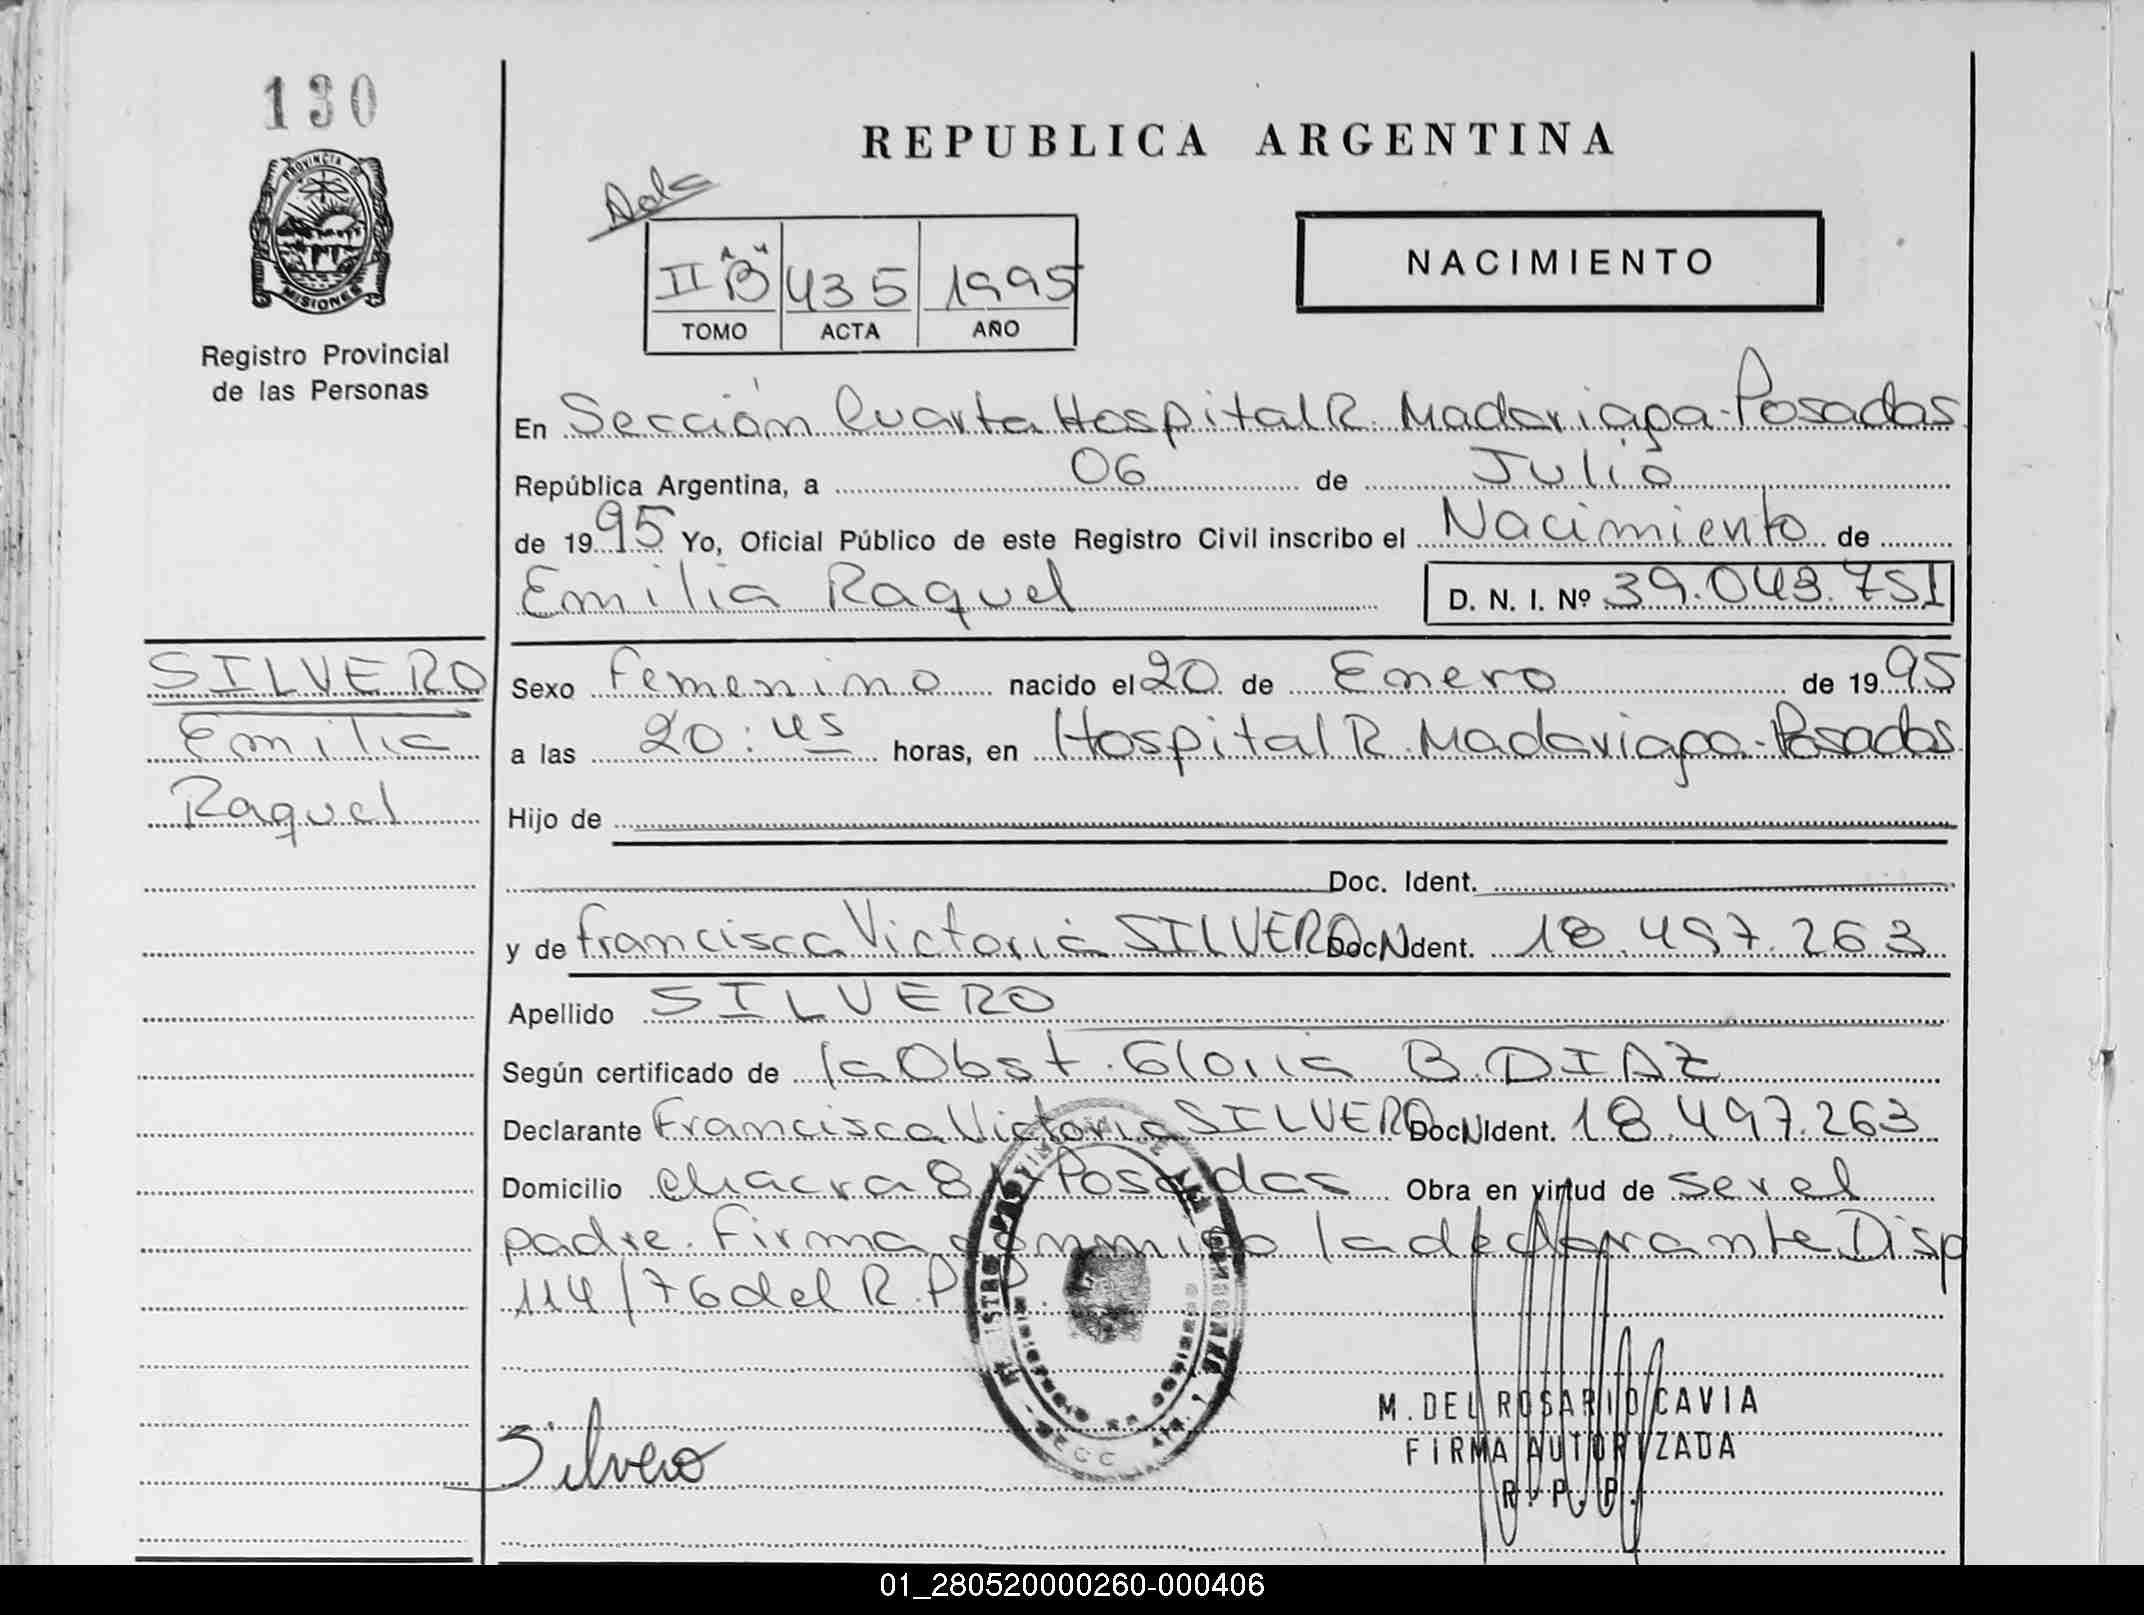 130
REPUBLICA ARGENTINA
PROVINCIA DE
MISIONES
Registro Provincial
de las Personas
II "B" 435 1995
TOMO ACTA AÑO
NACIMIENTO
En Sección Cuarta Hospital R. Madariaga-Posadas
República Argentina, a 06 de Julio
de 1995 Yo, Oficial Público de este Registro Civil inscribo el Nacimiento de
Emilia Raquel D. N. I. Nº 39.043.751
SILVERO
Emilia
Raquel
Sexo femenino nacido el 20 de Enero de 1995
a las 20:45 horas, en Hospital R. Madariaga-Posadas
Hijo de
Doc. Ident.
y de Francisca Victoria SILVERO Doc Ident. 18.497.263
Apellido SILVERO
Según certificado de la Obst. Gloria B. DIAZ
Declarante Francisca Victoria SILVERO Doc Ident. 18.497.263
Domicilio chacra 81 Posadas Obra en virtud de ser el
padre. Firma conmigo la declarante Disp
114/76 del R.P.P.
Silvero
M. DEL ROSARIO CAVIA
FIRMA AUTORIZADA
R. P. P.
01_280520000260-000406